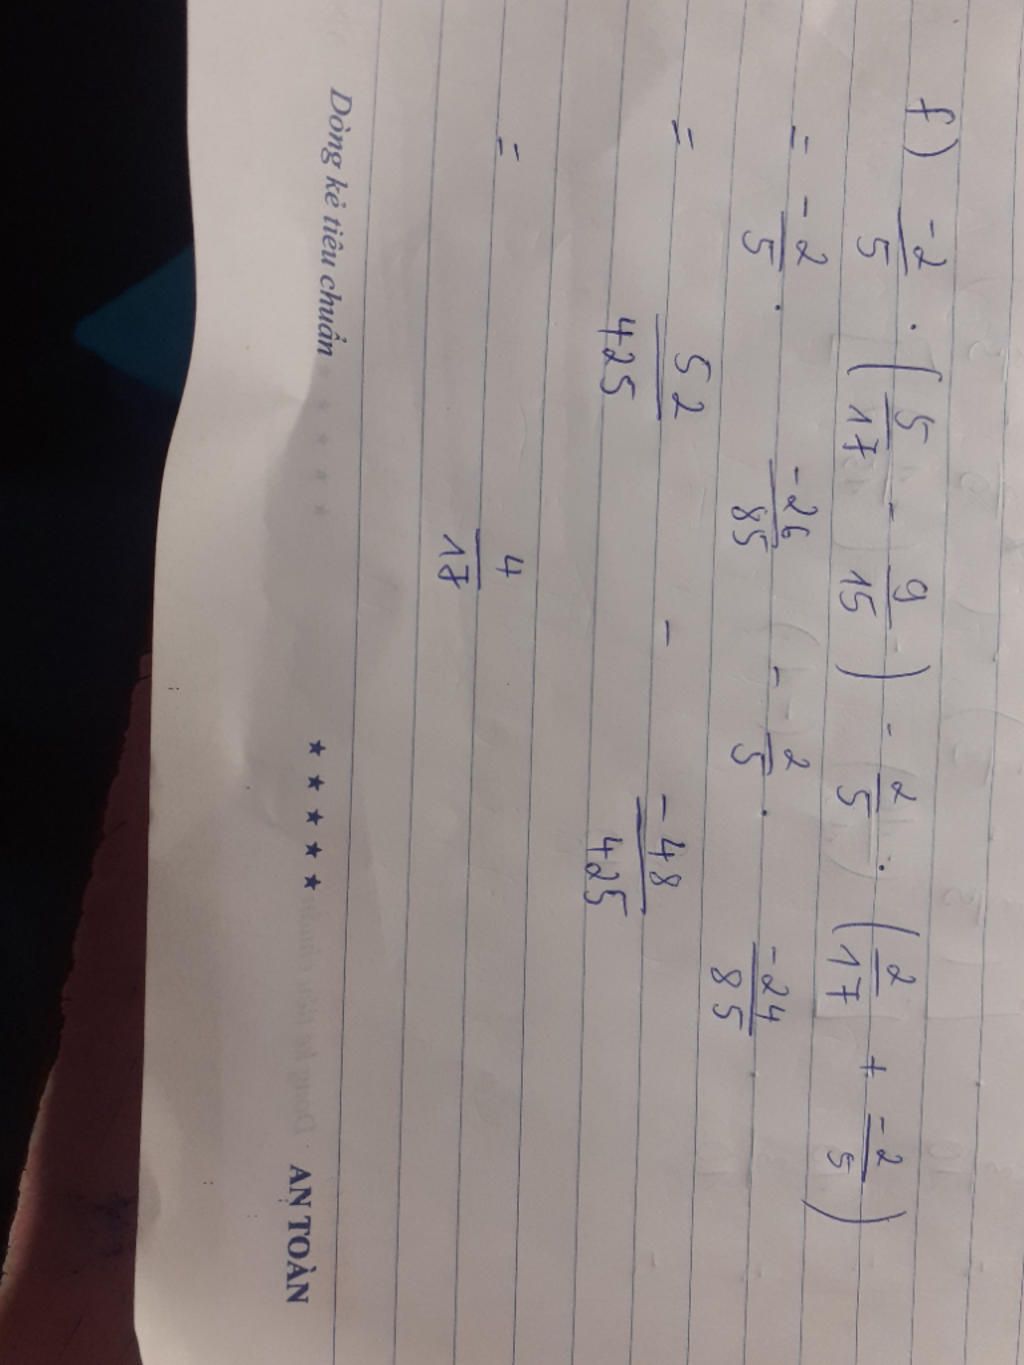 f) -2/5 . (5/17 - 9/15) - 2/5 . (2/17 + -2/5)
= -2/5 . -26/85 - 2/5 . -24/85
= 52/425 - -48/425
= 4/17
Dòng kẻ tiêu chuẩn ★ ★ ★ ★ ★ AN TOÀN